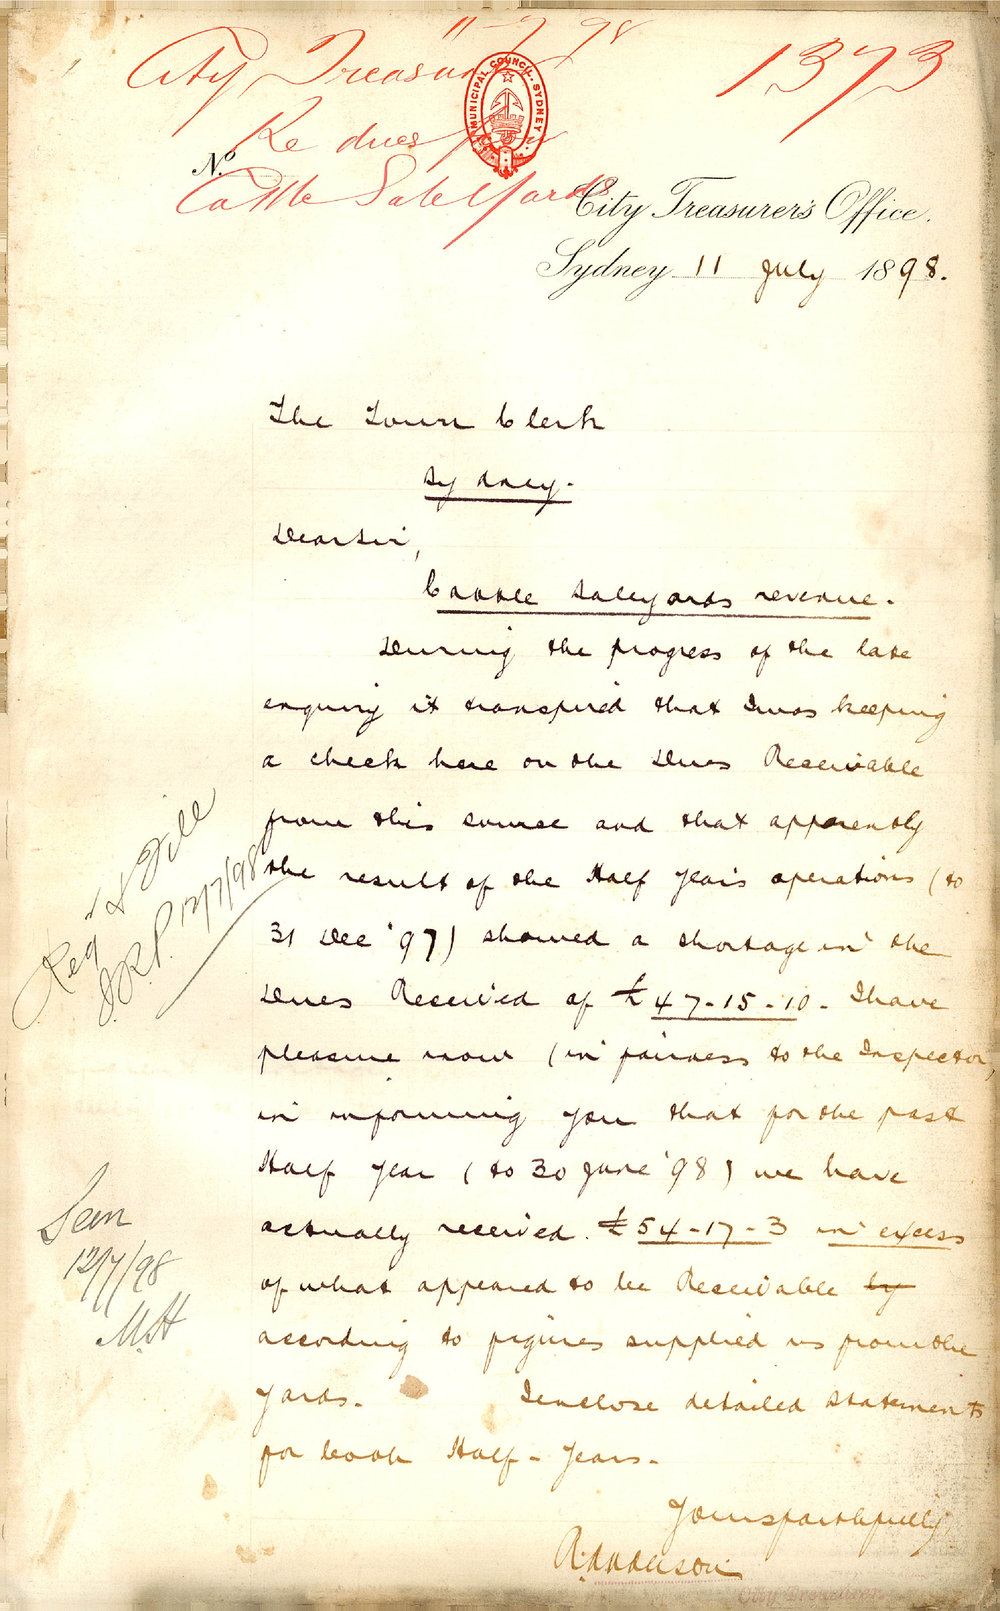 11-7-98
City Treasurer
1373
Re dues from
Cattle Sale Yards
MUNICIPAL COUNCIL. SYDNEY
No.
City Treasurer's Office.
Sydney 11 July 1898.
The Town Clerk
Sydney.
Dear Sir,
Cattle Saleyards revenue.
During the progress of the late
enquiry it transpired that I was keeping
a check here on the Dues Receivable
from this source and that apparently
the result of the Half Year's operations (to
31 Dec '97) showed a shortage in the
Dues Received of £47-15-10. I have
pleasure now (in fairness to the Inspector,
in informing you that for the past
Half Year (to 30 June '98) we have
actually received £54-17-3 in excess
of what appeared to be Receivable by
according to figures supplied us from the
yards. I enclose detailed statements
for both Half-Years.
Yours faithfully
City Treasurer
Seen
12/7/98
M.H
12/7/98